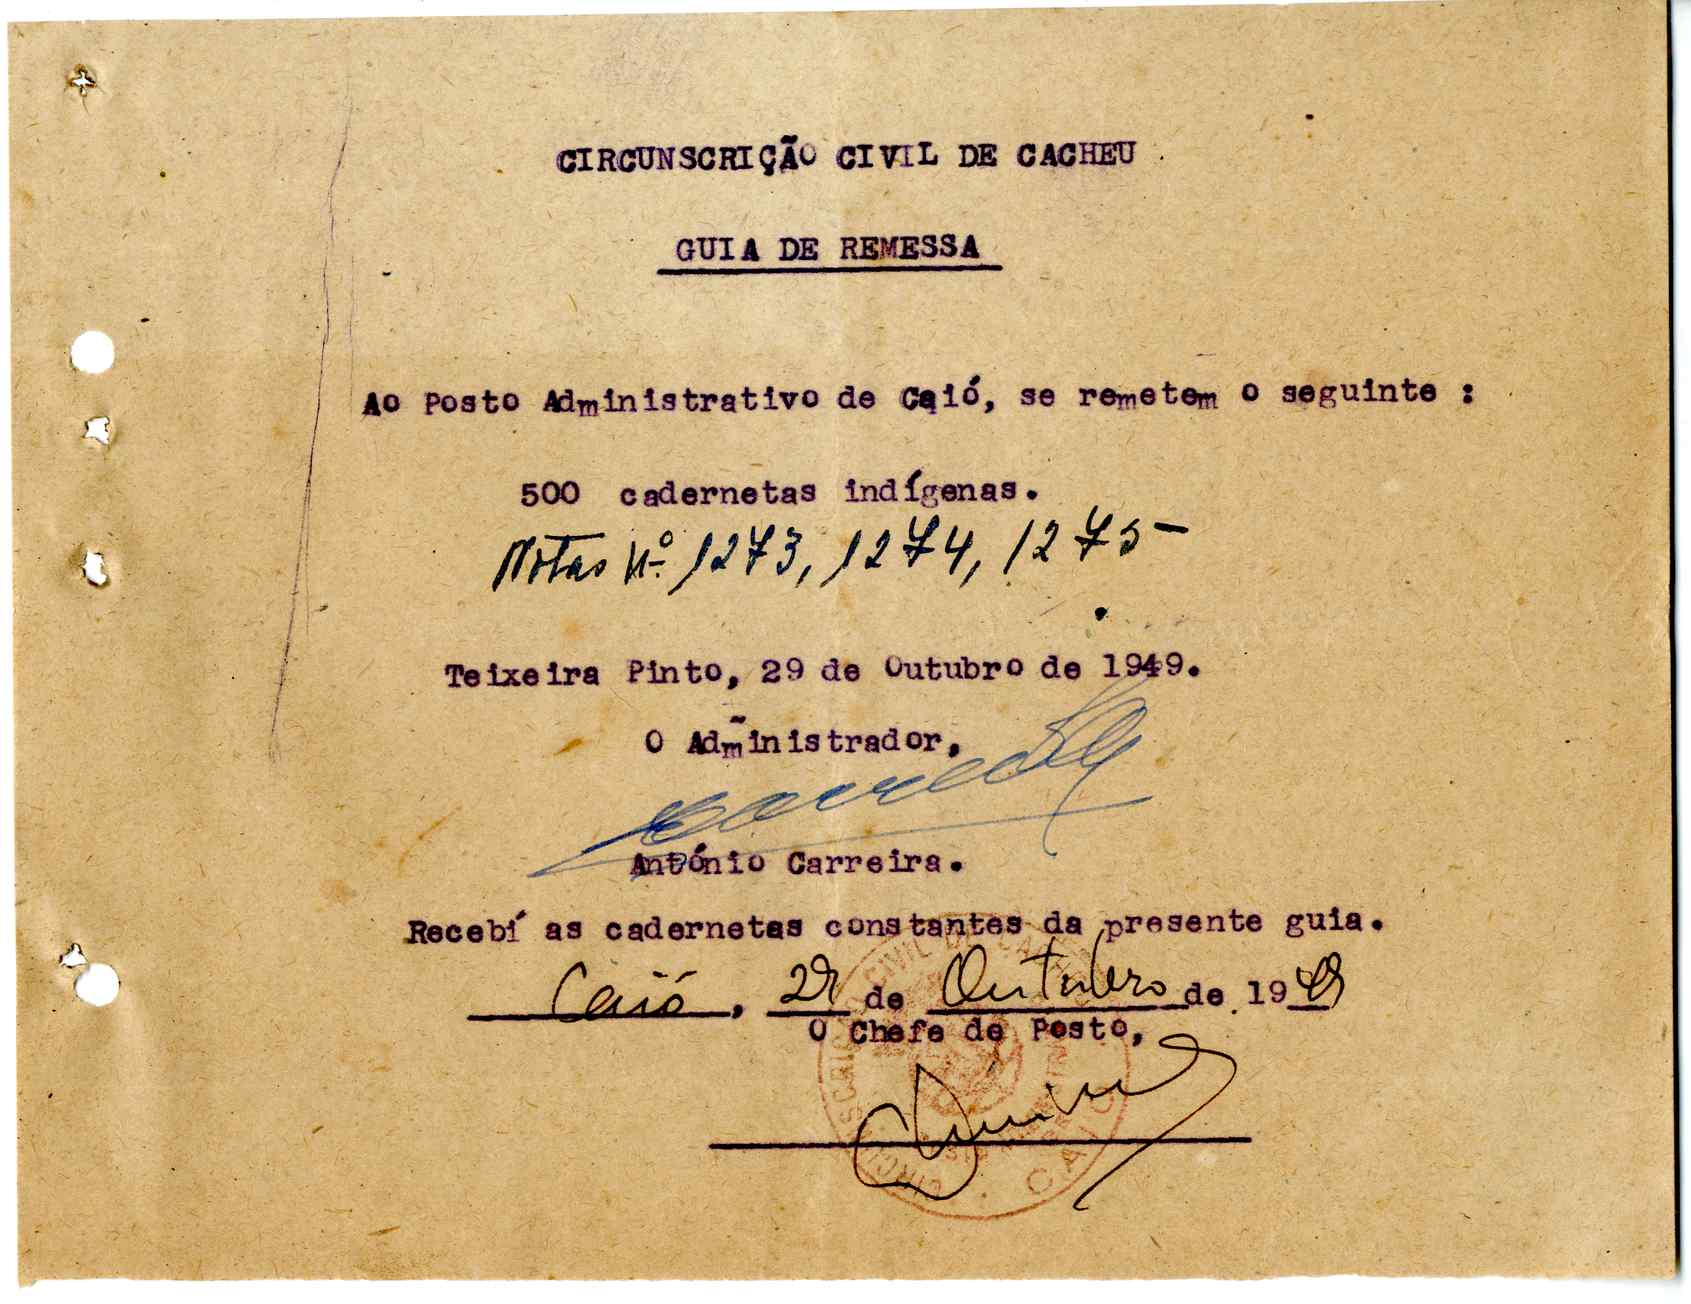 CIRCUNSCRIÇÃO CIVIL DE CACHEU
GUIA DE REMESSA
Ao Posto Administrativo de Caió, se remetem o seguinte :
500 cadernetas indígenas.
Notas Nº 1273, 1274, 1275
Teixeira Pinto, 29 de Outubro de 1949.
O Adm̃inistrador,
António Carreira.
Recebí as cadernetas constantes da presente guia.
Caió, 29 de Outubro de 1949
O Chefe de Posto,
CAIÓ